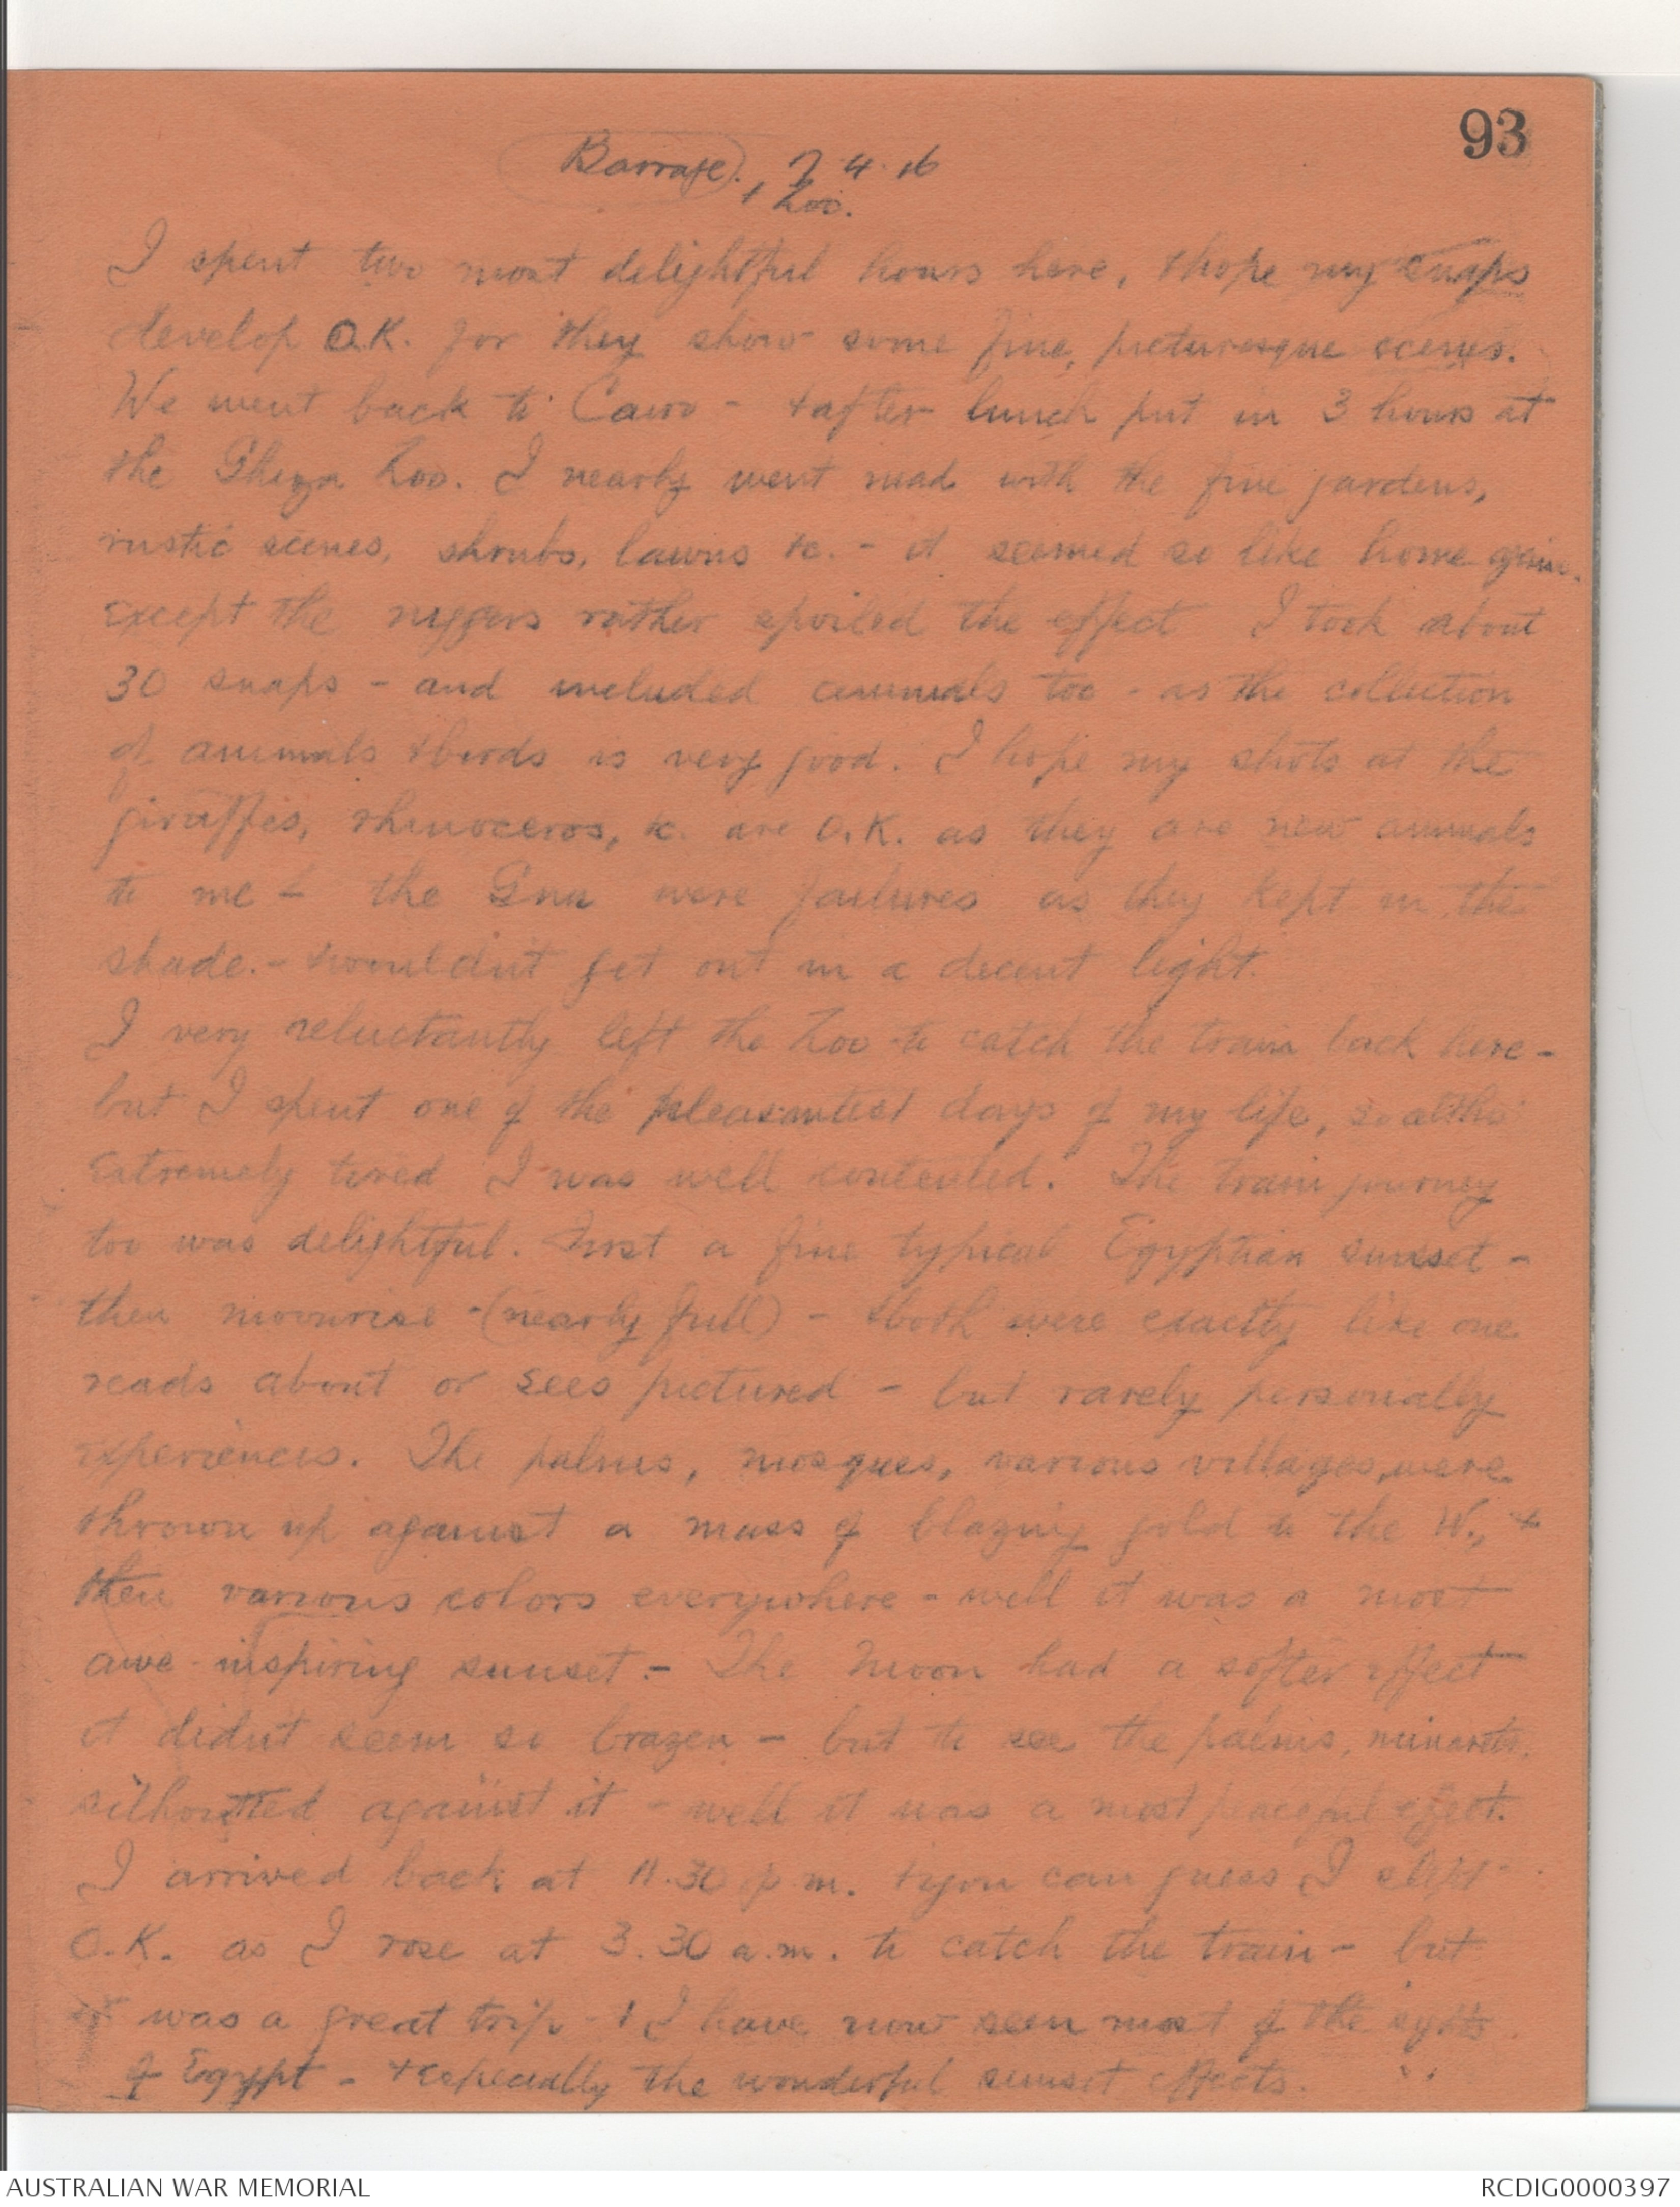 93
Barrage., 7 4.16
+ Zoo.
I spent two most delightful hours here, & hope my snaps
develop O.K. for they show some fine, picturesque scenes.
We went back to Cairo - & after lunch put in 3 hours at
the Ghiza Zoo. I nearly went mad with the fine gardens,
rustic scenes, shrubs, lawns &c. - it seemed so like home again.
except the niggers rather spoiled the effect I took about
30 snaps - and included animals too - as the collection
of animals & birds is very good. I hope my shots at the
giraffes, rhinoceros, &c. are O.K. as they are new animals
to me - the Gnu were failures as they kept in the
shade. - & wouldn't get out in a decent light.
I very reluctantly left the Zoo to catch the train back here -
but I spent one of the pleasantest days of my life, so altho'
extremely tired I was well contented. The train journey
too was delightful. First a fine typical Egyptian sunset -
then moonrise - (nearly full) - & both were exactly like one
reads about or sees pictured - but rarely personally
experiences. The palms, mosques, various villages, were
thrown up against a mass of blazing gold to the W., +
then various colors everywhere - well it was a most
awe-inspiring sunset. - The moon had a softer effect
it didn't seem so brazen - but to see the palms, minarets,
silhoutted against it - well it was a most peaceful effect.
I arrived back at 11.30 p.m. & you can guess I slept
O.K. as I rose at 3.30 a.m. to catch the train - but
it was a great trip - & I have now seen most of the sights
of Egypt - & especially the wonderful sunset effects.
AUSTRALIAN WAR MEMORIAL
RCDIG0000397